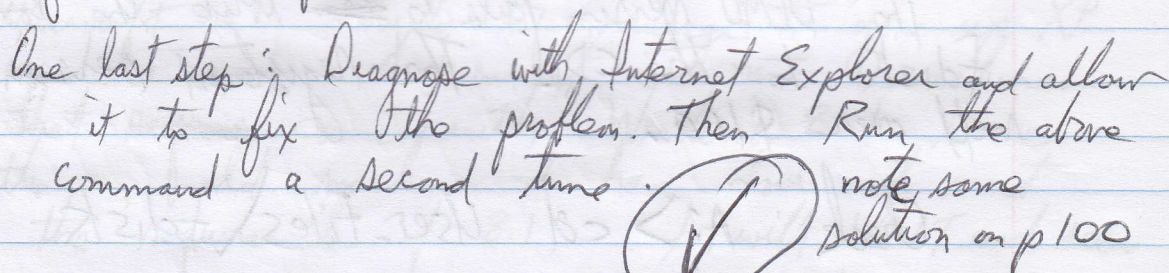 One last step: Diagnose with Internet Explorer and allow
it to fix the problem. Then Run the above
command a second time.
note, same
solution on p100